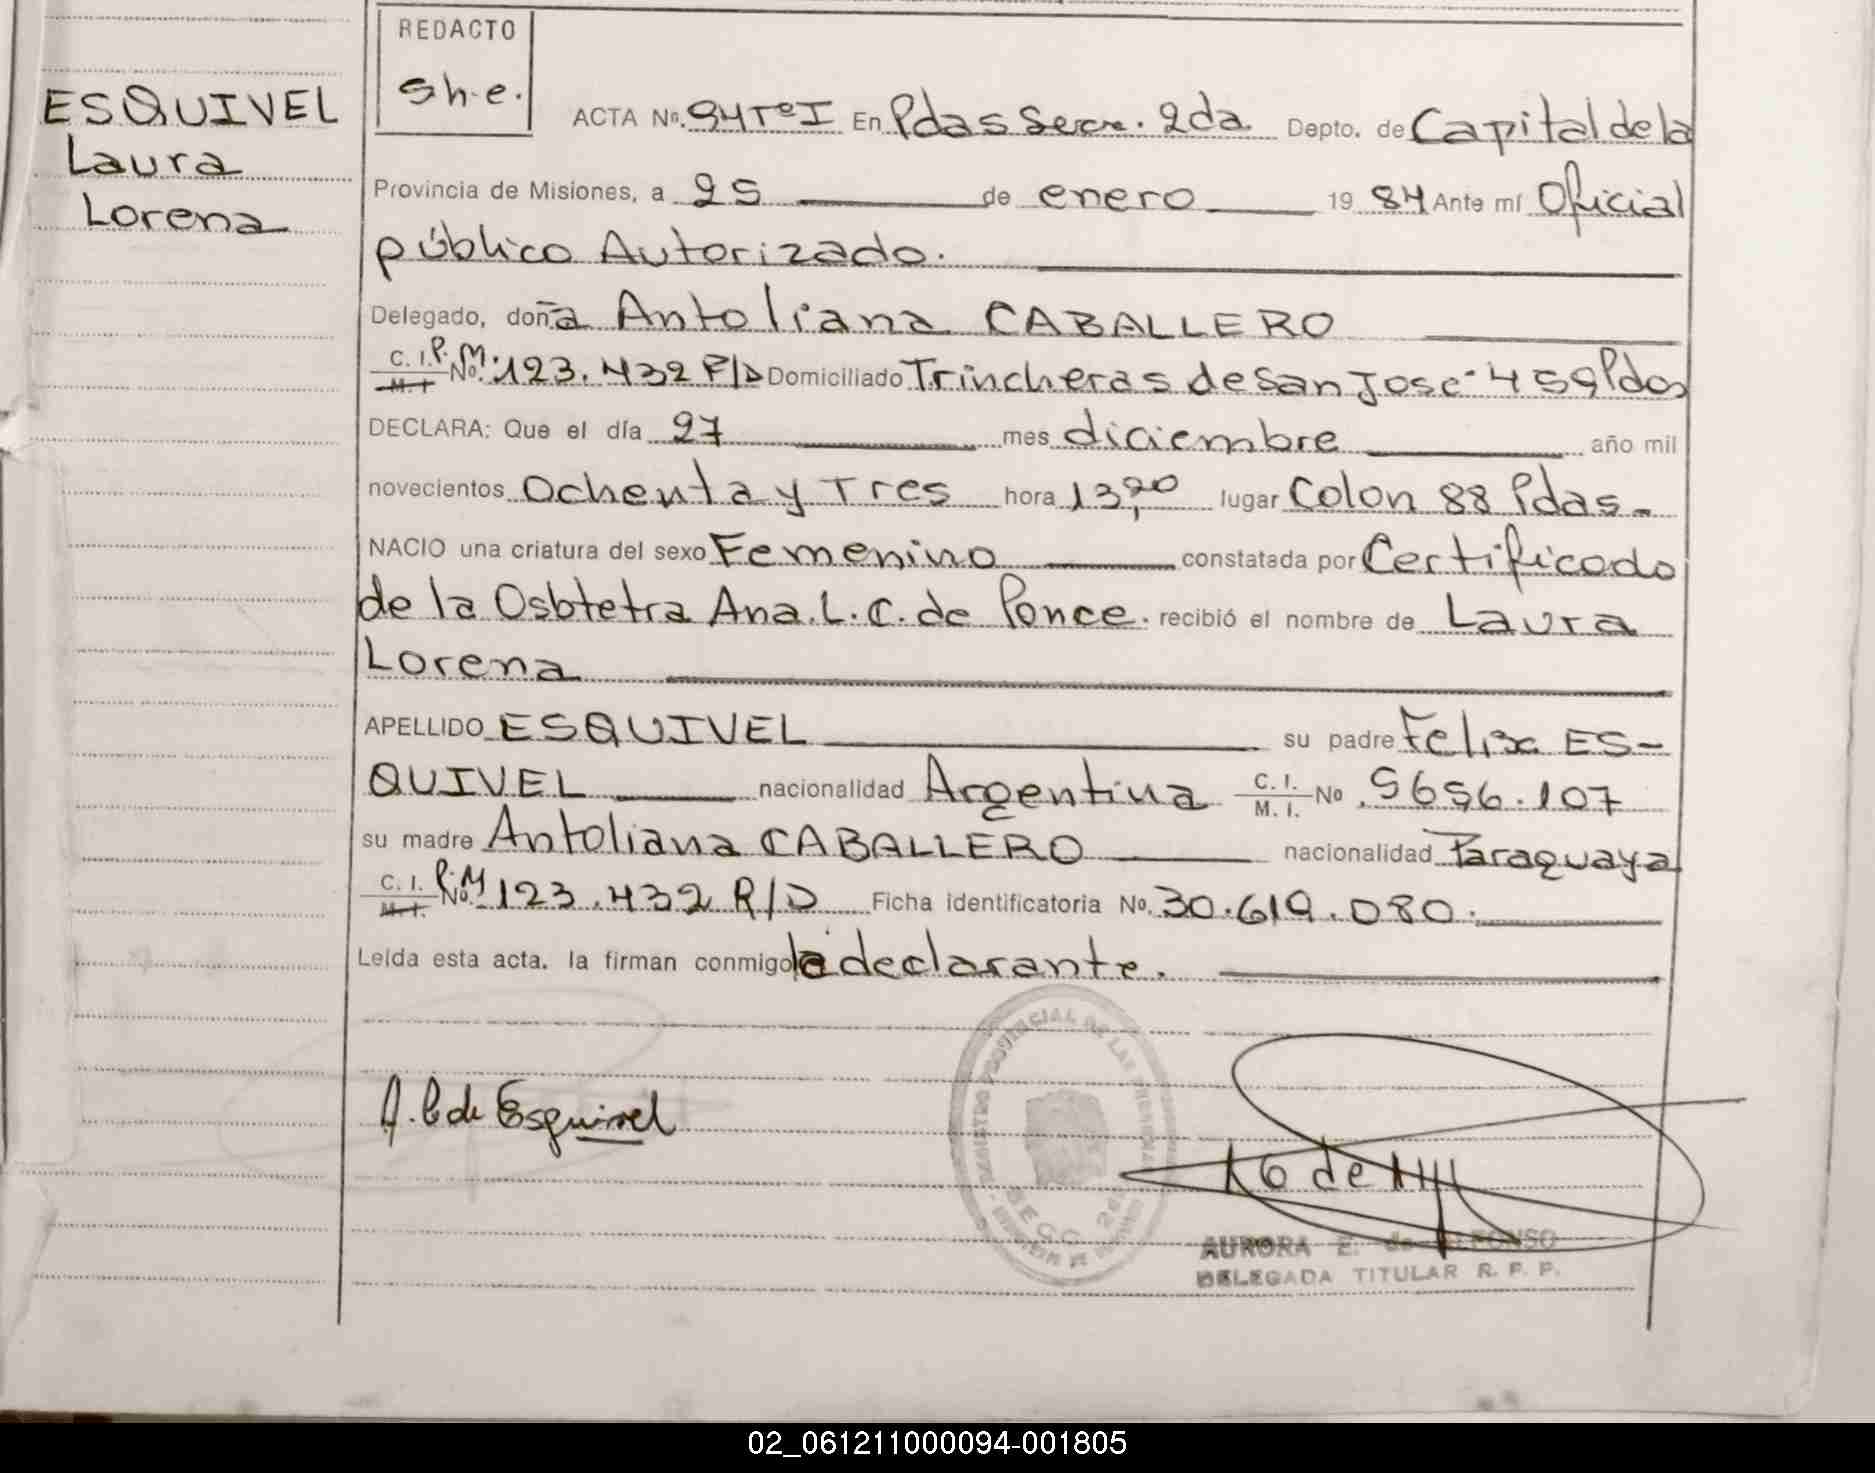 REDACTO
sh.e.
ESQUIVEL
Laura
Lorena
ACTA No. 94TºI En Pdas Secc. 2da. Depto. de Capital de la
Provincia de Misiones, a 25 de enero 1984 Ante mí Oficial
público Autorizado.
Delegado, doña Antoliana CABALLERO
C. I. P.M. No. 123.432 R/D Domiciliado Trincheras de San José 459 Pdas
M. I.
DECLARA: Que el día 27 mes diciembre año mil
novecientos Ochenta y Tres hora 13,20 lugar Colon 88 Pdas-
NACIO una criatura del sexo Femenino constatada por Certificado
de la Osbtetra Ana. L. C. de Ponce. recibió el nombre de Laura
Lorena
APELLIDO ESQUIVEL su padre Felix ES-
QUIVEL nacionalidad Argentina C. I. M. I. No. 5656.107
su madre Antoliana CABALLERO nacionalidad Paraguaya
C. I. M. I. P.M No. 123.432 R/D Ficha identificatoria No. 30.619.080.
Leída esta acta. la firman conmigo la declarante.
A. C de Esquivel
REGISTRO PROVINCIAL DE LAS PERSONAS
SECC. 2da
AURORA E. de ALFONSO
DELEGADA TITULAR R. P. P.
02_061211000094-001805